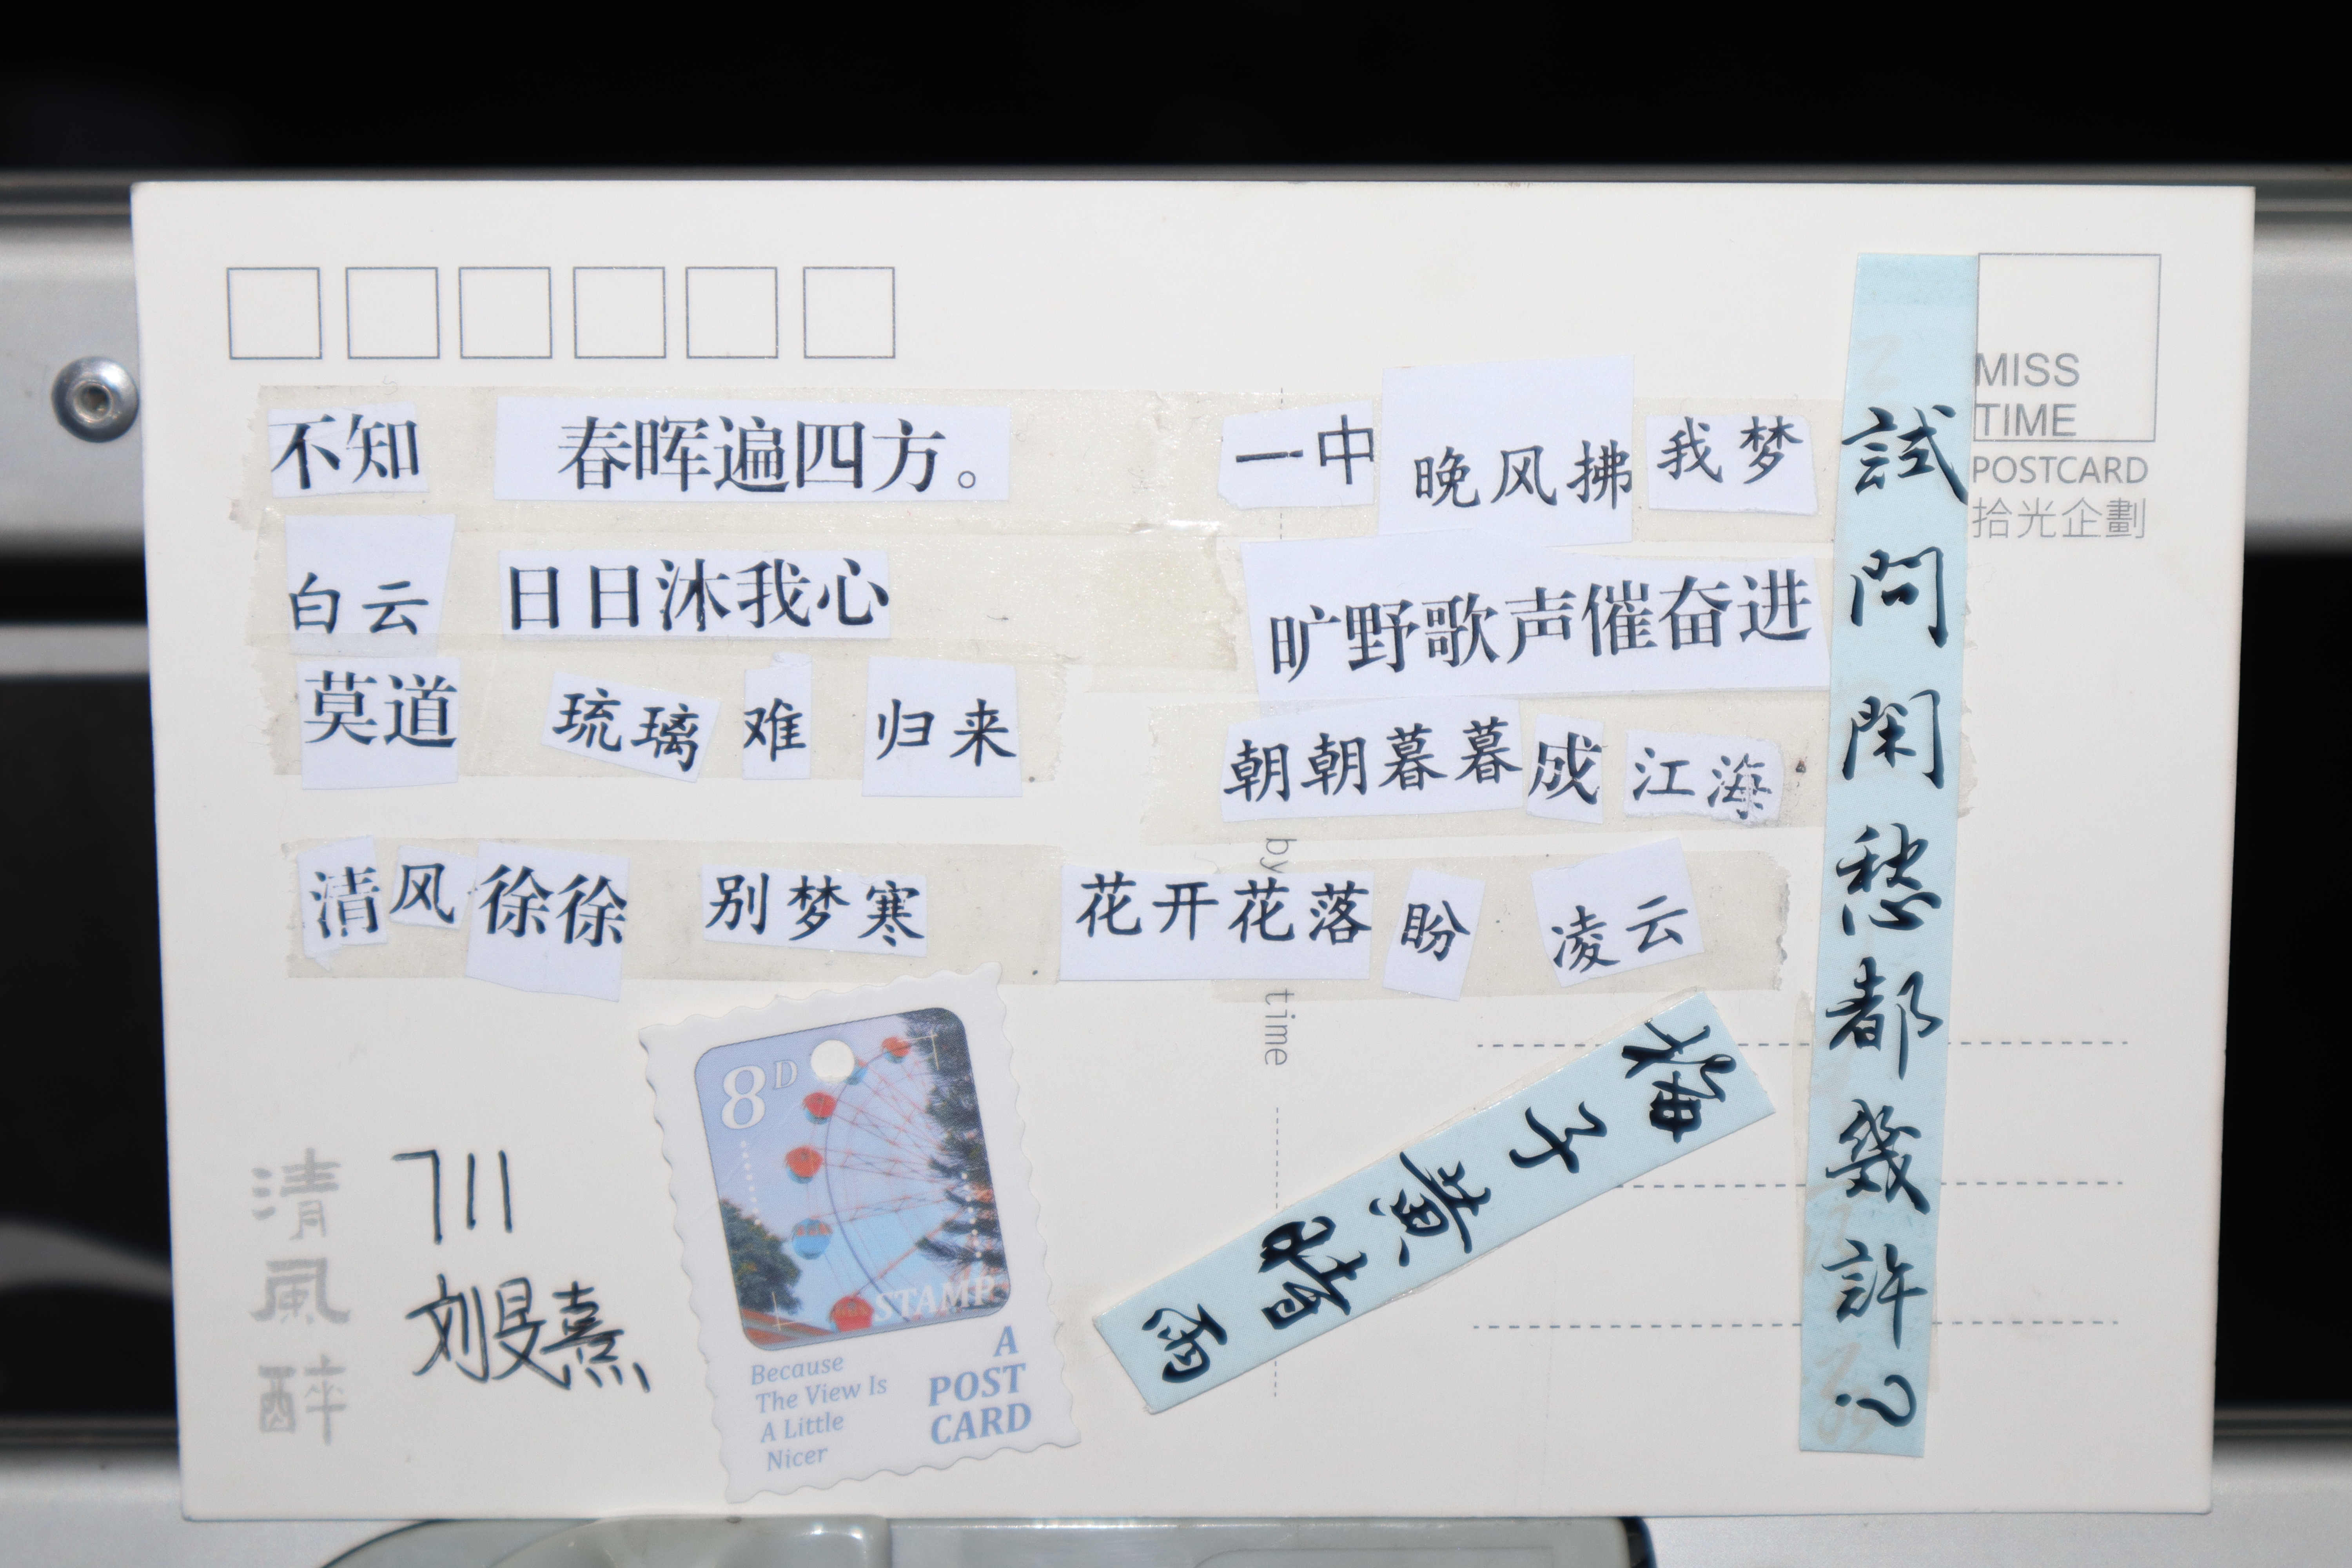 不知 春晖遍四方。
白云 日日沐我心
莫道 琉璃 难 归来
清风徐徐 别梦寒
一中 晚风拂 我梦
旷野歌声催奋进
朝朝暮暮成 江海
花开花落 盼 凌云
試問閑愁都幾許？
梅子黄時雨
MISS
TIME
POSTCARD
拾光企劃
by
time
清風醉
711
刘旻熹
8D
STAMP
Because
The View Is
A Little
Nicer
A
POST
CARD